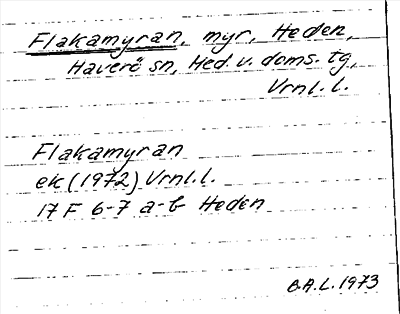 Flakamyran, myr, Heden,
Haverö sn, Hed. v. doms. tg,
Vrnl. l.
Flakamyran
ek (1972) Vrnl. l.
17 F 6-7 a-b Heden
B.A.L. 1973